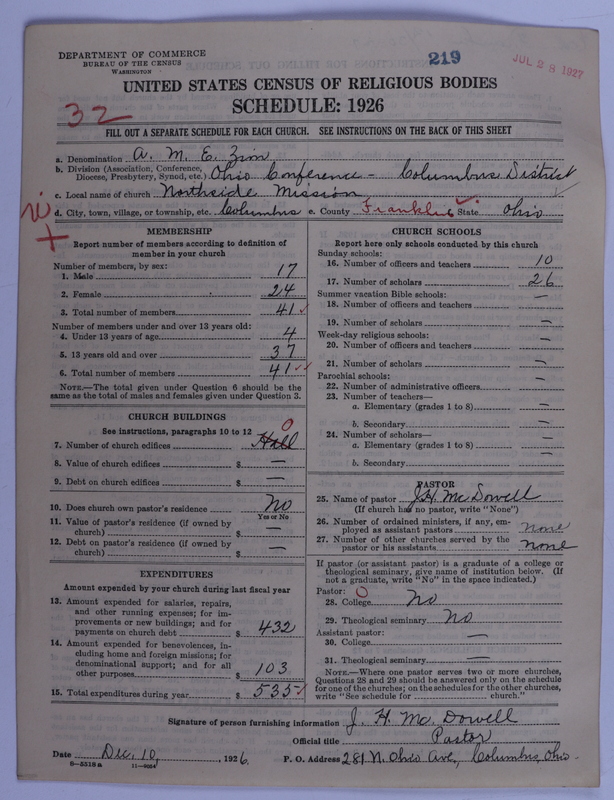 DEPARTMENT OF COMMERCE
BUREAU OF THE CENSUS
WASHINGTON
219
JUL 28 1927
UNITED STATES CENSUS OF RELIGIOUS BODIES
SCHEDULE: 1926
32
FILL OUT A SEPARATE SCHEDULE FOR EACH CHURCH. SEE INSTRUCTIONS ON THE BACK OF THIS SHEET
a. Denomination A. M. E. Zion
b. Division (Association, Conference, Diocese, Presbytery, Synod, etc.) Ohio Conference - Columbus District
c. Local name of church Northside Mission
d. City, town, village, or township, etc. Columbus e. County Franklin State Ohio
MEMBERSHIP
Report number of members according to definition of
member in your church
Number of members, by sex:
1. Male 17
2. Female 24
3. Total number of members 41
Number of members under and over 13 years old:
4. Under 13 years of age 4
5. 13 years old and over 37
6. Total number of members 41
NOTE.—The total given under Question 6 should be the
same as the total of males and females given under Question 3.
CHURCH BUILDINGS
See instructions, paragraphs 10 to 12
0
7. Number of church edifices Hall
8. Value of church edifices $ —
9. Debt on church edifices $ —
10. Does church own pastor's residence No
Yes or No
11. Value of pastor's residence (if owned by
church) $ —
12. Debt on pastor's residence (if owned by
church) $ —
EXPENDITURES
Amount expended by your church during last fiscal year
13. Amount expended for salaries, repairs,
and other running expenses; for im-
provements or new buildings; and for
payments on church debt $ 432
14. Amount expended for benevolences, in-
cluding home and foreign missions; for
denominational support; and for all
other purposes $ 103
15. Total expenditures during year $ 535
CHURCH SCHOOLS
Report here only schools conducted by this church
Sunday schools:
16. Number of officers and teachers 10
17. Number of scholars 26
Summer vacation Bible schools:
18. Number of officers and teachers —
19. Number of scholars —
Week-day religious schools:
20. Number of officers and teachers —
21. Number of scholars —
Parochial schools:
22. Number of administrative officers —
23. Number of teachers—
a. Elementary (grades 1 to 8) —
b. Secondary —
24. Number of scholars—
a. Elementary (grades 1 to 8) —
b. Secondary —
PASTOR
25. Name of pastor J. H. McDowell
(If church has no pastor, write "None")
26. Number of ordained ministers, if any, em-
ployed as assistant pastors None
27. Number of other churches served by the
pastor or his assistants None
If pastor (or assistant pastor) is a graduate of a college or
theological seminary, give name of institution below. (If
not a graduate, write "No" in the space indicated.)
Pastor: 0
28. College No
29. Theological seminary No
Assistant pastor:
30. College —
31. Theological seminary —
NOTE.—Where one pastor serves two or more churches,
Questions 28 and 29 should be answered only on the schedule
for one of the churches; on the schedules for the other churches,
write "See schedule for church."
Signature of person furnishing information J. H. McDowell
Official title Pastor
Date Dec. 10, 1926. P. O. Address 281 N. Ohio Ave., Columbus, Ohio.
8—5518a 11—9064